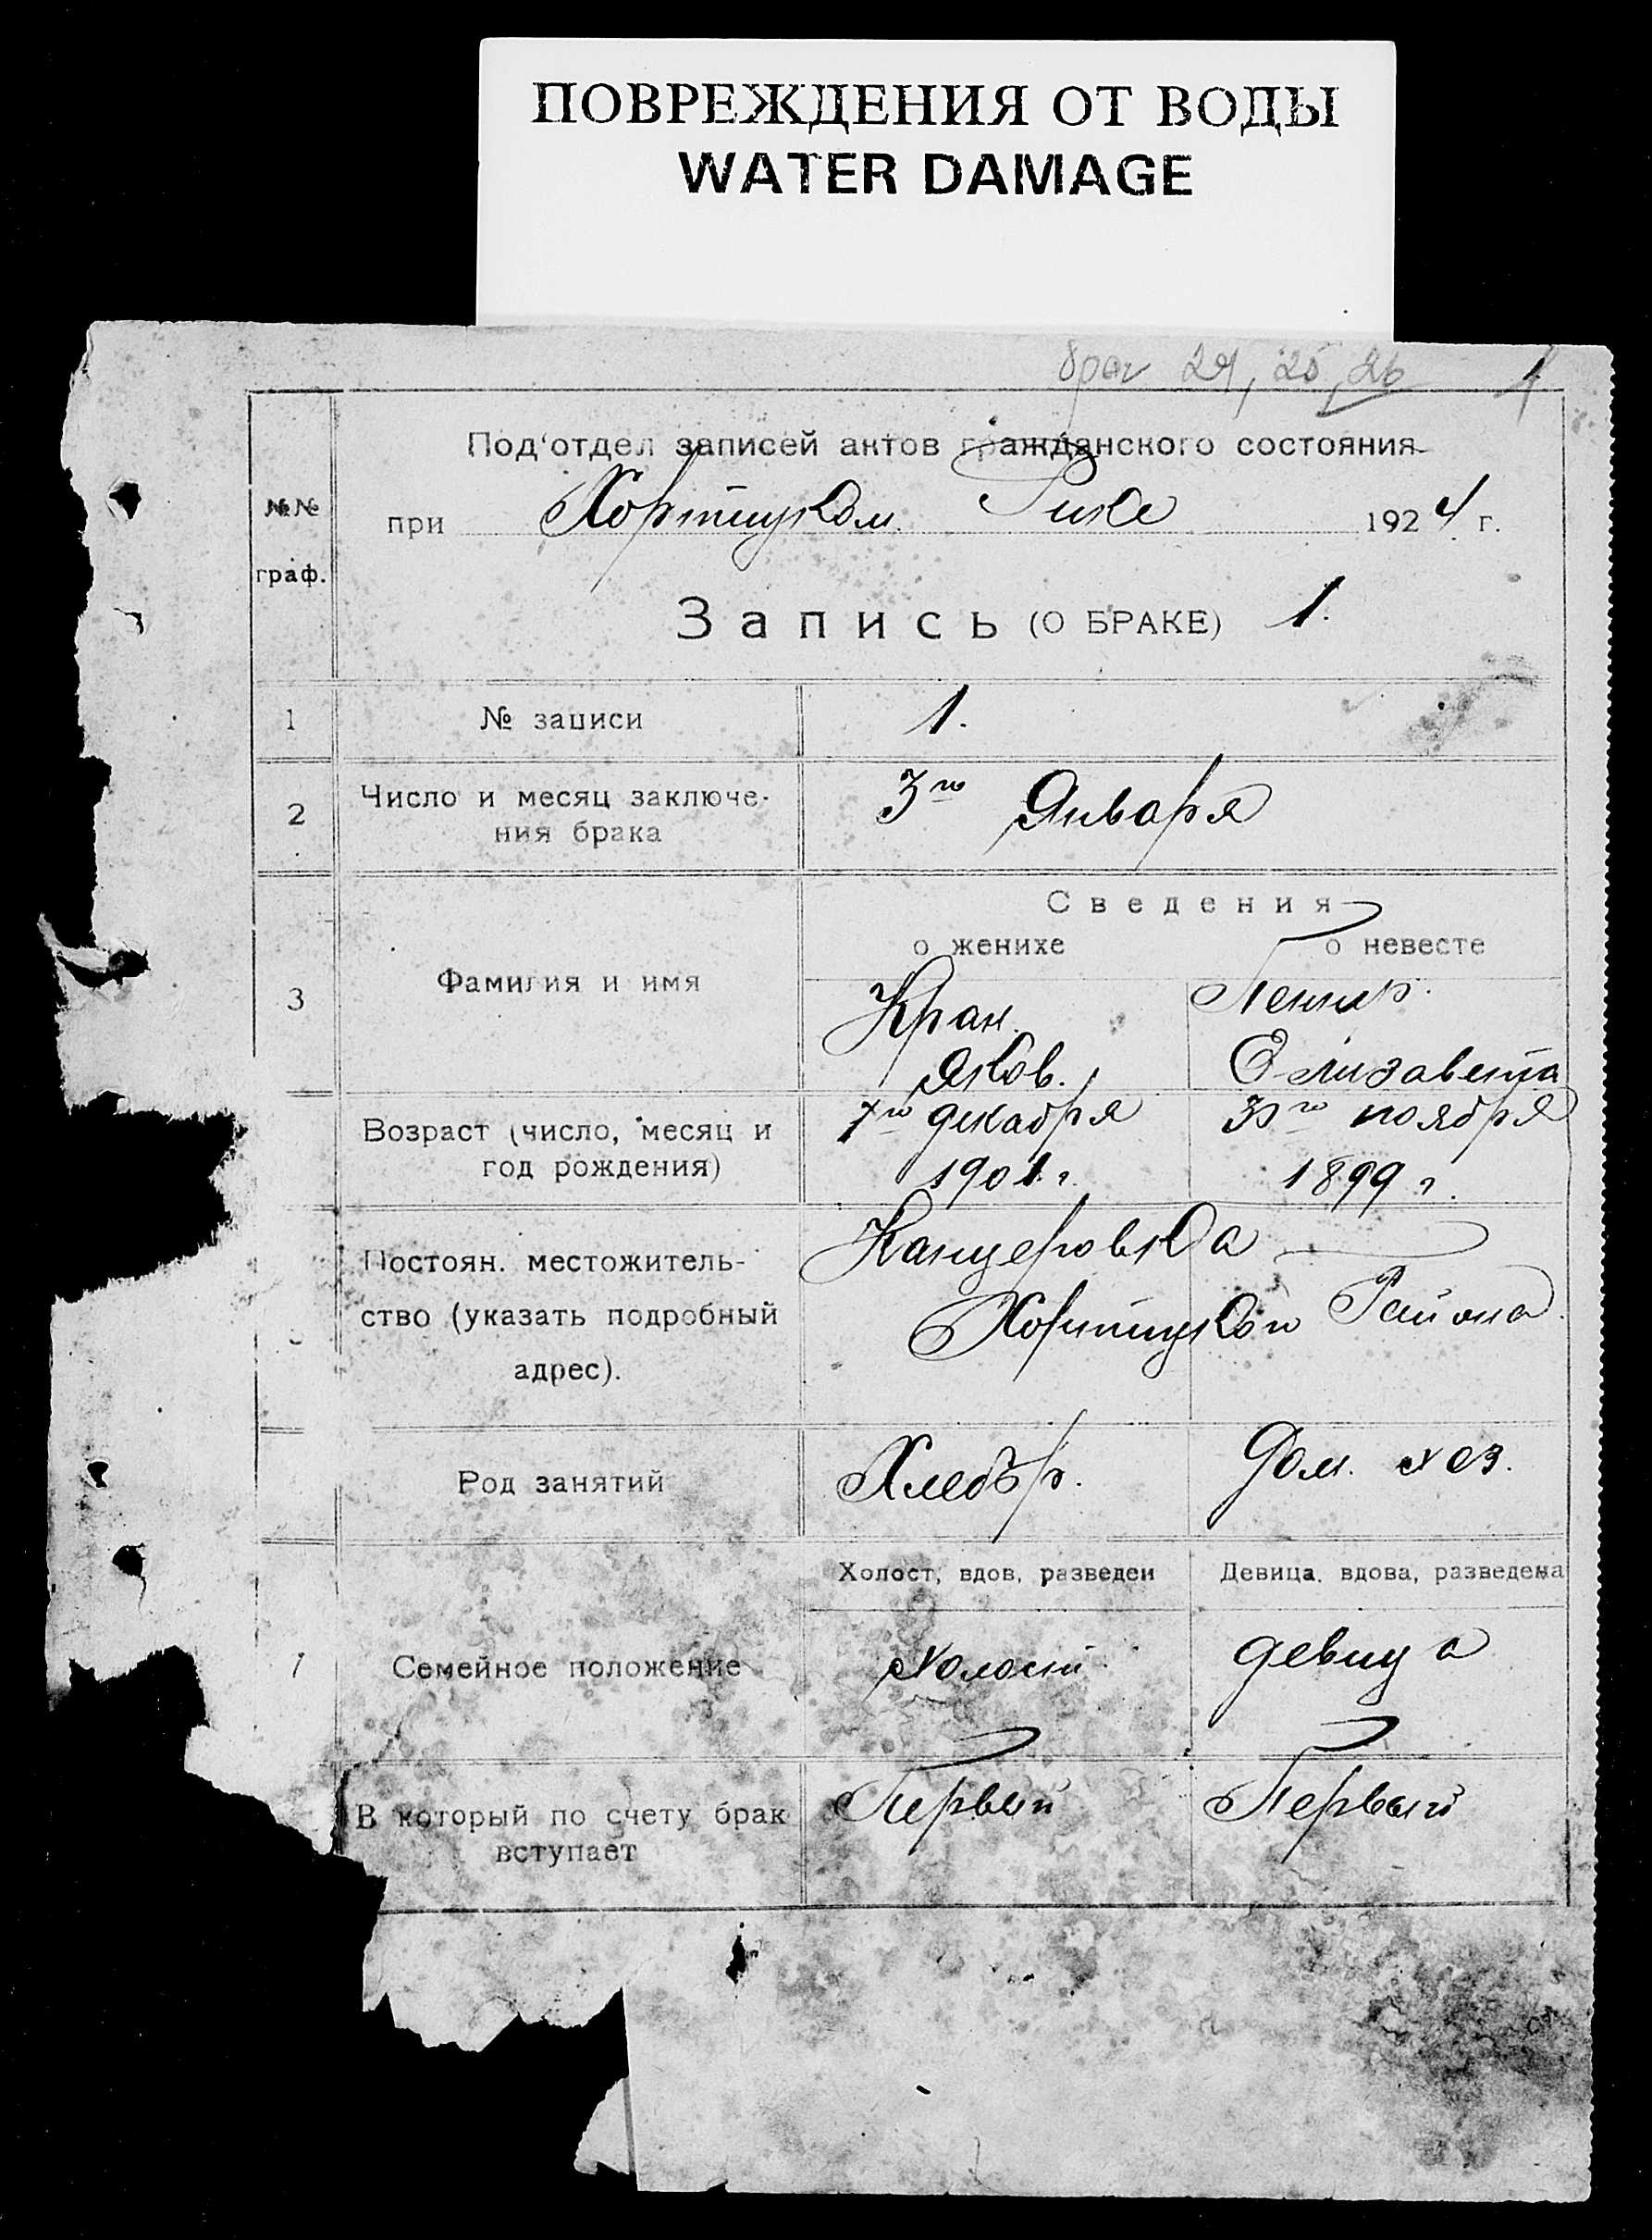 ПОВРЕЖДЕНИЯ ОТ ВОДЫ
WATER DAMAGE
брак 24, 25, 26 1
№№ граф.
Под'отдел записей актов гражданского состояния
при Хортицком Рике 1924 г.
Запись (О БРАКЕ) 1.
1 № записи 1.
2 Число и месяц заключе-
ния брака 3го Января
Сведения
о женихе о невесте
3 Фамилия и имя Кран Пеннер
Яков. Елизавета
Возраст (число, месяц и 7го декабря 30го ноября
год рождения) 1901 г. 1899 г.
Постоян. местожитель- Канцеровка
ство (указать подробный Хортицкой Района
адрес).
Род занятий Хлебор. Дом. хоз.
Холост, вдов, разведен Девица, вдова, разведена
7 Семейное положение холост девица
В который по счету брак Первый Первый
вступает